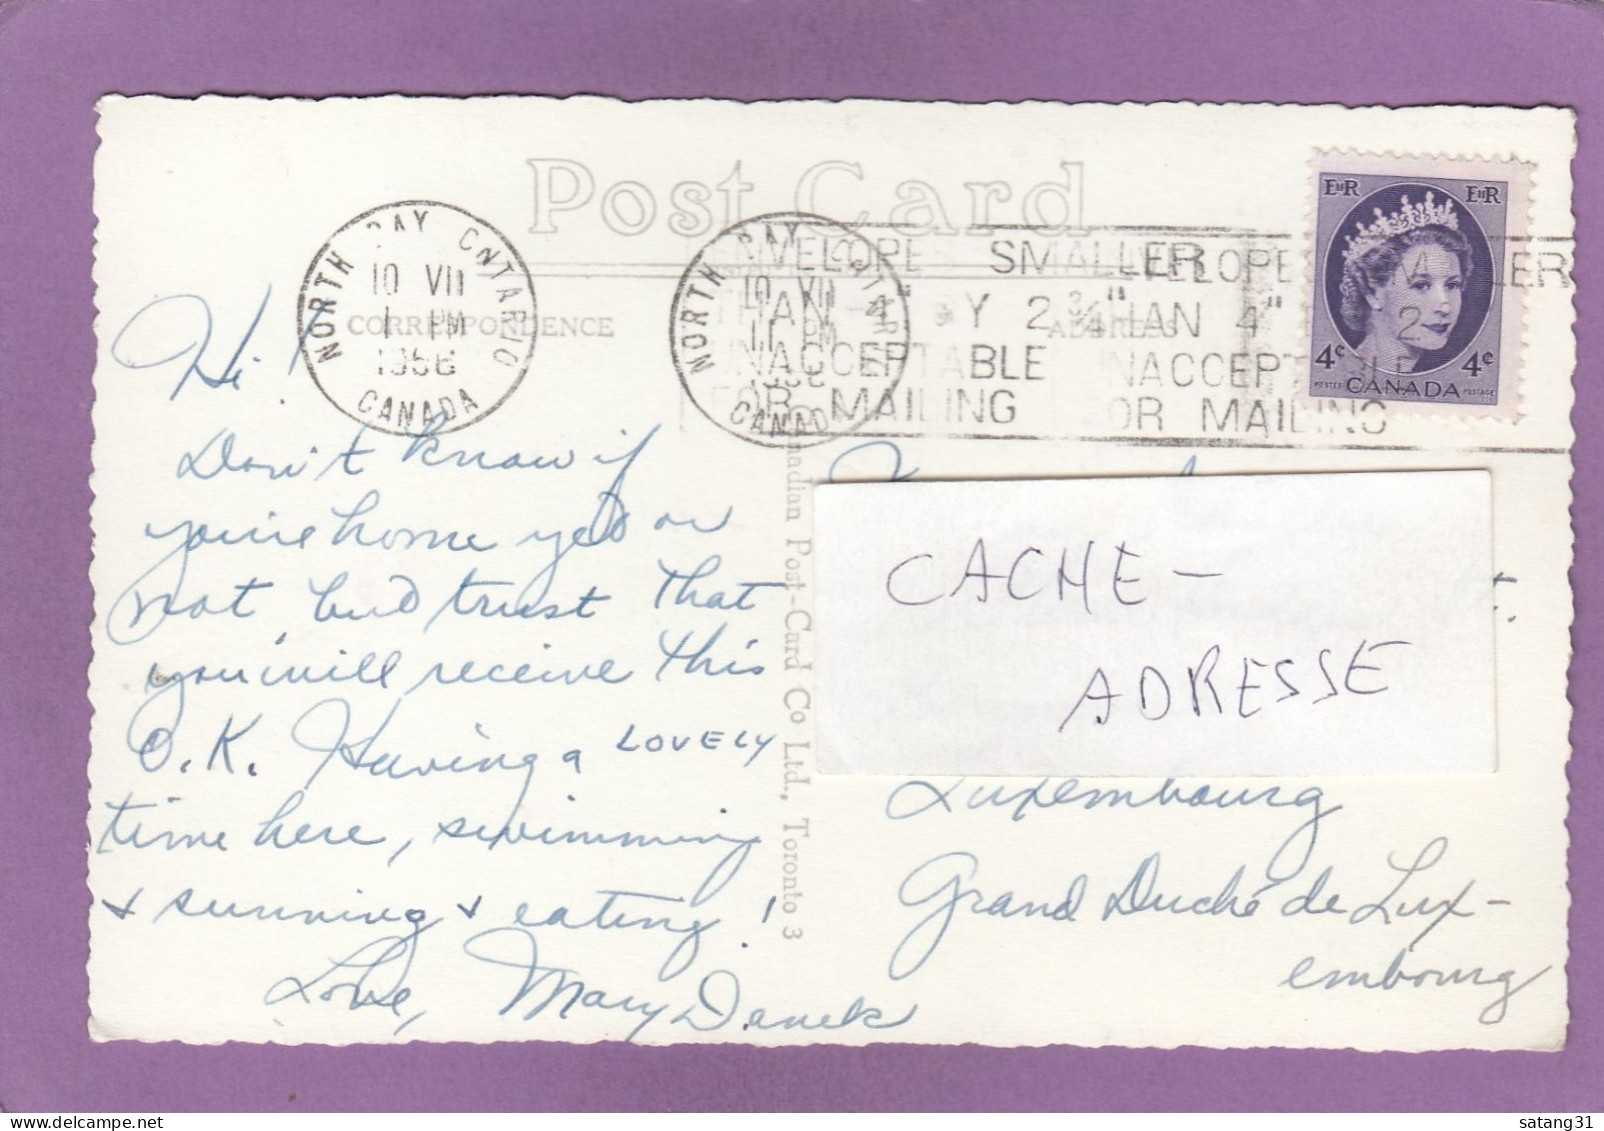 Post Card
NORTH BAY ONTARIO
10 VII
1 PM
CANADA
NORTH BAY ONTARIO
CANADA
ENVELOPES SMALLER
THAN 4" BY 2 ¾"
UNACCEPTABLE
FOR MAILING
EIIR EIIR
4¢ 4¢
POSTES CANADA POSTAGE
CORRESPONDENCE
ADDRESS
Hi!
Don't know if
you're home yet or
not but trust that
you will receive this
O.K. Having a LOVELY
time here, swimming
& sunning & eating!
Love, Mary Danek
Canadian Post-Card Co Ltd., Toronto 3
CACHE-
ADRESSE
Luxembourg
Grand Duché de Lux-
embourg
satang31